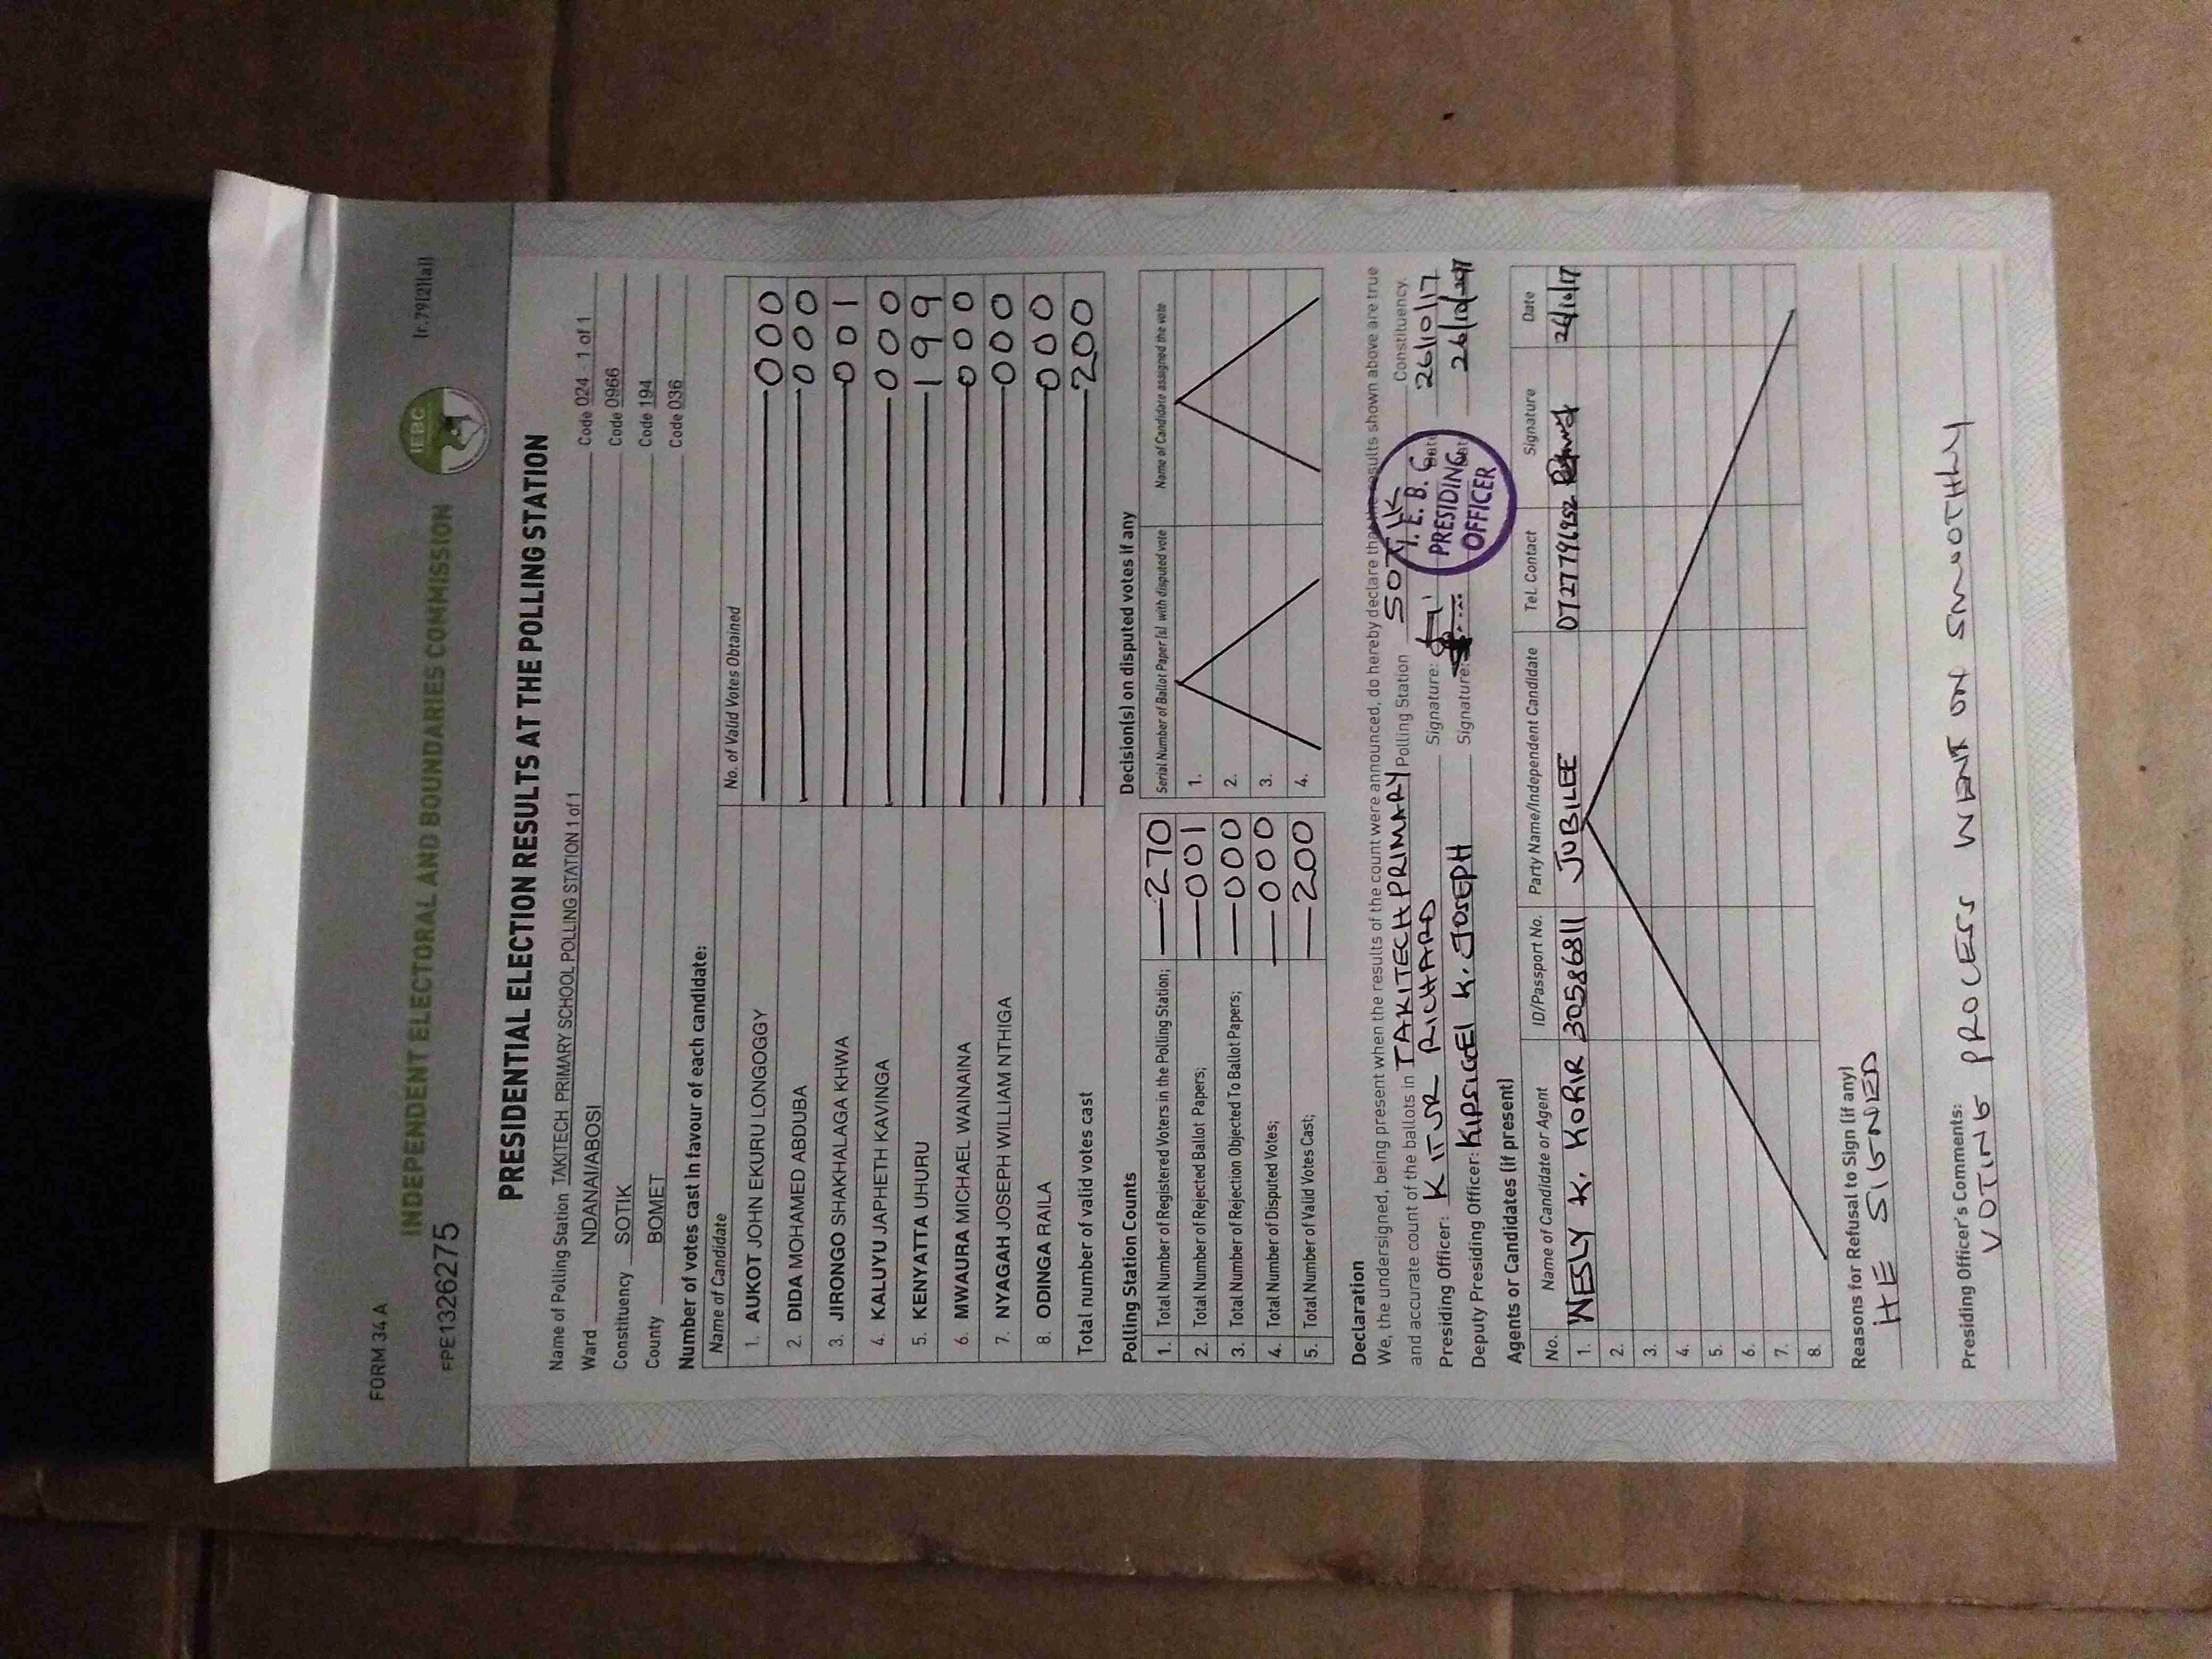 FORM 34 A
(r.79(2)(a))
INDEPENDENT ELECTORAL AND BOUNDARIES COMMISSION
IEBC
FPE1326275
PRESIDENTIAL ELECTION RESULTS AT THE POLLING STATION
Name of Polling Station TAKITECH PRIMARY SCHOOL POLLING STATION 1 of 1 Code 024 - 1 of 1
Ward NDANAI/ABOSI Code 0966
Constituency SOTIK Code 194
County BOMET Code 036
Number of votes cast in favour of each candidate:
Name of Candidate No. of Valid Votes Obtained
1. AUKOT JOHN EKURU LONGOGGY 000
2. DIDA MOHAMED ABDUBA 000
3. JIRONGO SHAKHALAGA KHWA 001
4. KALUYU JAPHETH KAVINGA 000
5. KENYATTA UHURU 199
6. MWAURA MICHAEL WAINAINA 000
7. NYAGAH JOSEPH WILLIAM NTHIGA 000
8. ODINGA RAILA 000
Total number of valid votes cast 200
Polling Station Counts
1. Total Number of Registered Voters in the Polling Station; 270
2. Total Number of Rejected Ballot Papers; 001
3. Total Number of Rejection Objected To Ballot Papers; 000
4. Total Number of Disputed Votes; 000
5. Total Number of Valid Votes Cast; 200
Decision(s) on disputed votes if any
Serial Number of Ballot Paper(s) with disputed vote Name of Candidate assigned the vote
1.
2.
3.
4.
Declaration
We, the undersigned, being present when the results of the count were announced, do hereby declare that the results shown above are true
and accurate count of the ballots in TAKITECH PRIMARY Polling Station SOTIK Constituency.
Presiding Officer: KITUR RICHARD Signature: Date 26/10/17
Deputy Presiding Officer: KIPSIGEI K. JOSEPH Signature: Date
I.E.B.C.
PRESIDING
OFFICER
Agents or Candidates (if present)
No. Name of Candidate or Agent ID/Passport No. Party Name/Independent Candidate Tel. Contact Signature Date
1. WESLY K. KORIR 30586811 JUBILEE 0727796952 26/10/17
2.
3.
4.
5.
6.
7.
8.
Reasons for Refusal to Sign (if any)
HE SIGNED
Presiding Officer's Comments:
VOTING PROCESS WENT ON SMOOTHLY